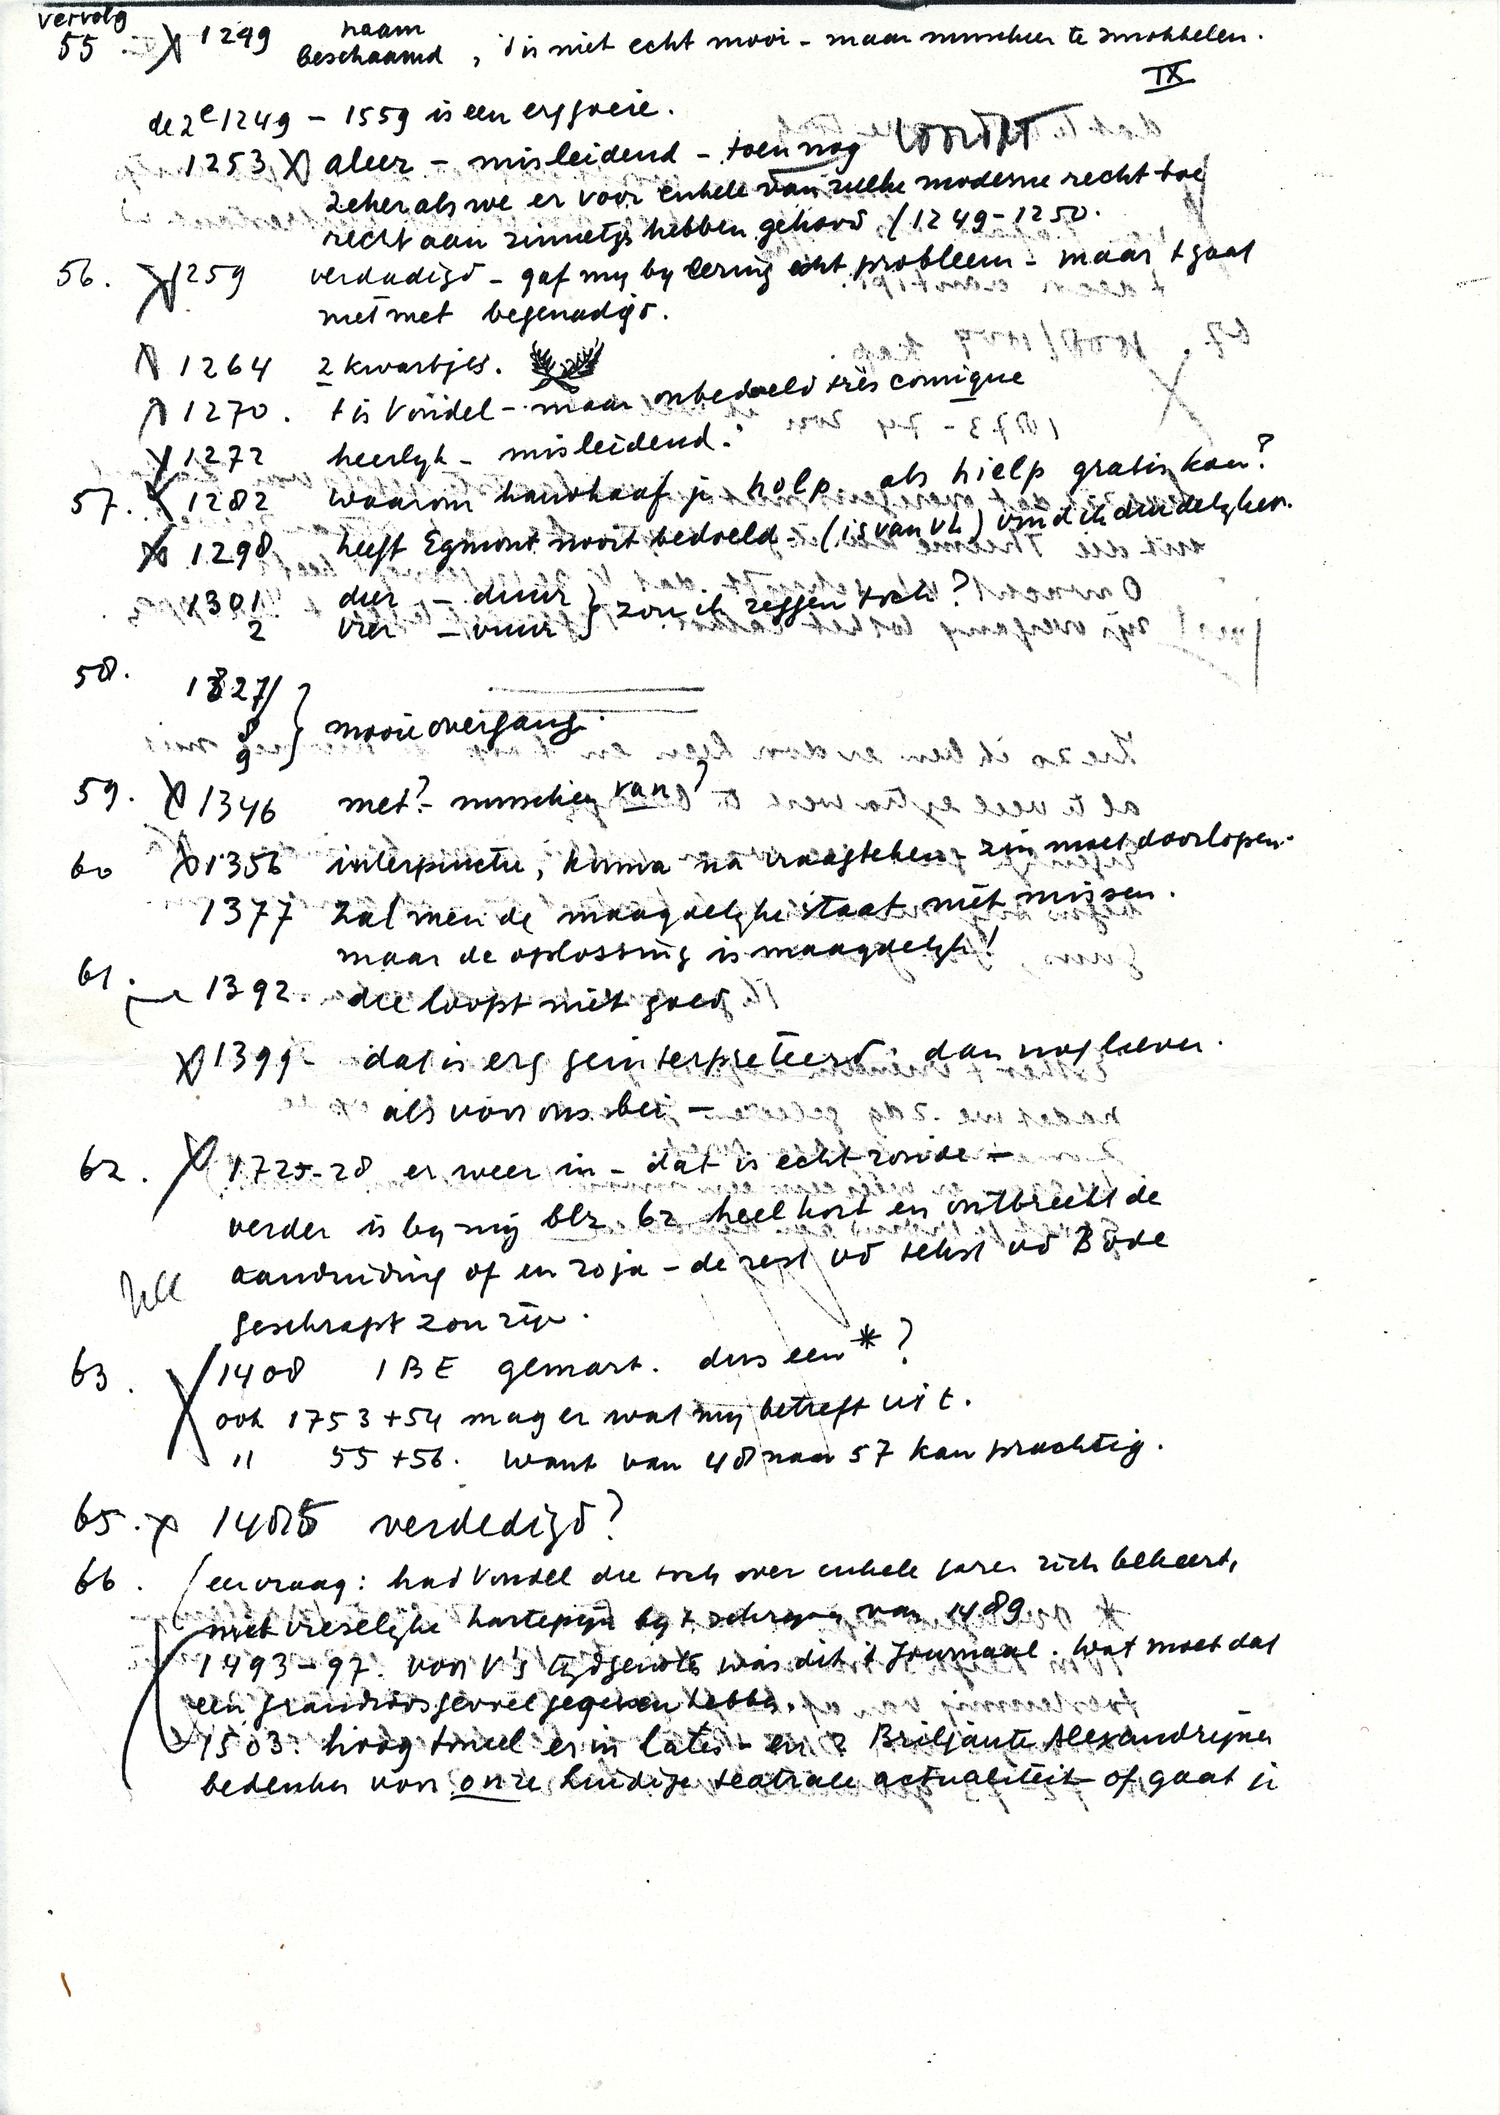 vervolg
55 X 1249 naam
beschaamd, 't is niet echt mooi - maar misschien te smokkelen.
IX
de 2e 1249 - 1559 is een erg goeie.
1253 X aleer - misleidend - toen nog
zeker als we er voor enkele van zulke moderne recht toe
recht aan zinnetjes hebben gehoord / 1249-1250.
56. X 1259 verdedigd - gaf my by lezing echt probleem - maar t gaat
niet met begenadigd.
1264 2 kwartjes.
1270. t is Vondel - maar onbedoeld très comique
X 1272 heerlyk - misleidend.
57. X 1282 waarom handhaaf je holp als hielp gratis kan?
X 1298 heeft Egmont nooit bedoeld - (is van vL) vind ik duidelyker.
1301 dier - duur } zou ik zeggen toch?
2 vier - vuur
58. 1327/
8
9 } mooie overgang.
59. X 1346 met? - misschien van?
60 X 1356 interpunctie, komma na vraagteken - zin moet doorlopen.
1377 Zal men de maagdelyke staat niet missen.
maar de oplossing is maagdelyk!
61. 1392. die loopt niet goed
X 1399 - dat is erg geinterpreteerd. dan nog liever.
als voor ons bei -
62. X 1725-28 er weer in - dat is echt zonde -
verder is by my blz 62 heel kort en ontbreekt de
aanduiding of en zo ja - de rest vd tekst vd Bode
geschrapt zou zijn.
63. X 1408 1 BE gemart. dus een *?
ook 1753 + 54 mag er wat my betreft uit.
" 55 + 56. want van 48 naar 57 kan prachtig.
65. x 1485 verdedigd?
66. (een vraag: had Vondel die toch over enkele jaren zich bekeert,
niet vreselyke hartepijn by t schrijven van 1489
1493-97. voor V's tijdgenoten was dit 't Journaal. Wat moet dat
een grandioos gevoel gegeven hebben.
1503. hoog toneel er in laten - en 2 Briljante Alexandrijnen
bedenken voor onze huidige teatrale actualiteit - of gaat je